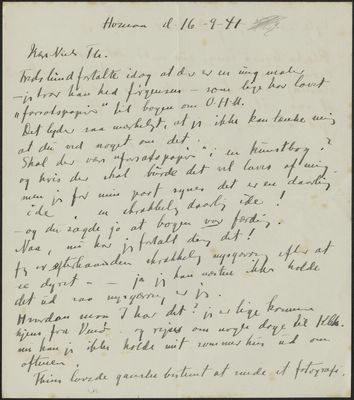 Horsens d 16-9-41
Kære Niels Th.
Fredslund fortalte idag at der er en ung maler
– jeg tror han hed Jørgensen – som lige har lavet
"forsatspapir" til bogen om O.H.H.
Det lyder saa mærkeligt, at jeg ikke kan tænke mig
at du ved noget om det.
Skal der være "forsatspapir" i en kunstbog?
og hvis der skal burde det vel laves af mig.
men jeg for min part synes det er en daarlig
ide, en skrækkelig daarlig ide!
– og du sagde jo at bogen var færdig.
Naa, nu har jeg fortalt dig det!
Jeg er efterhaanden skrækkelig nysgerrig efter at
se dyret – ja jeg kan næsten ikke holde
det ud saa nysgerrig er jeg.
Hvordan mon I har det? jeg er lige kommen
hjem fra og rejser om nogle dage til Kbh.
nu kan jeg ikke holde mit sommerhus ud om
aftenen.
lovede ganske bestemt at sende et fotografi